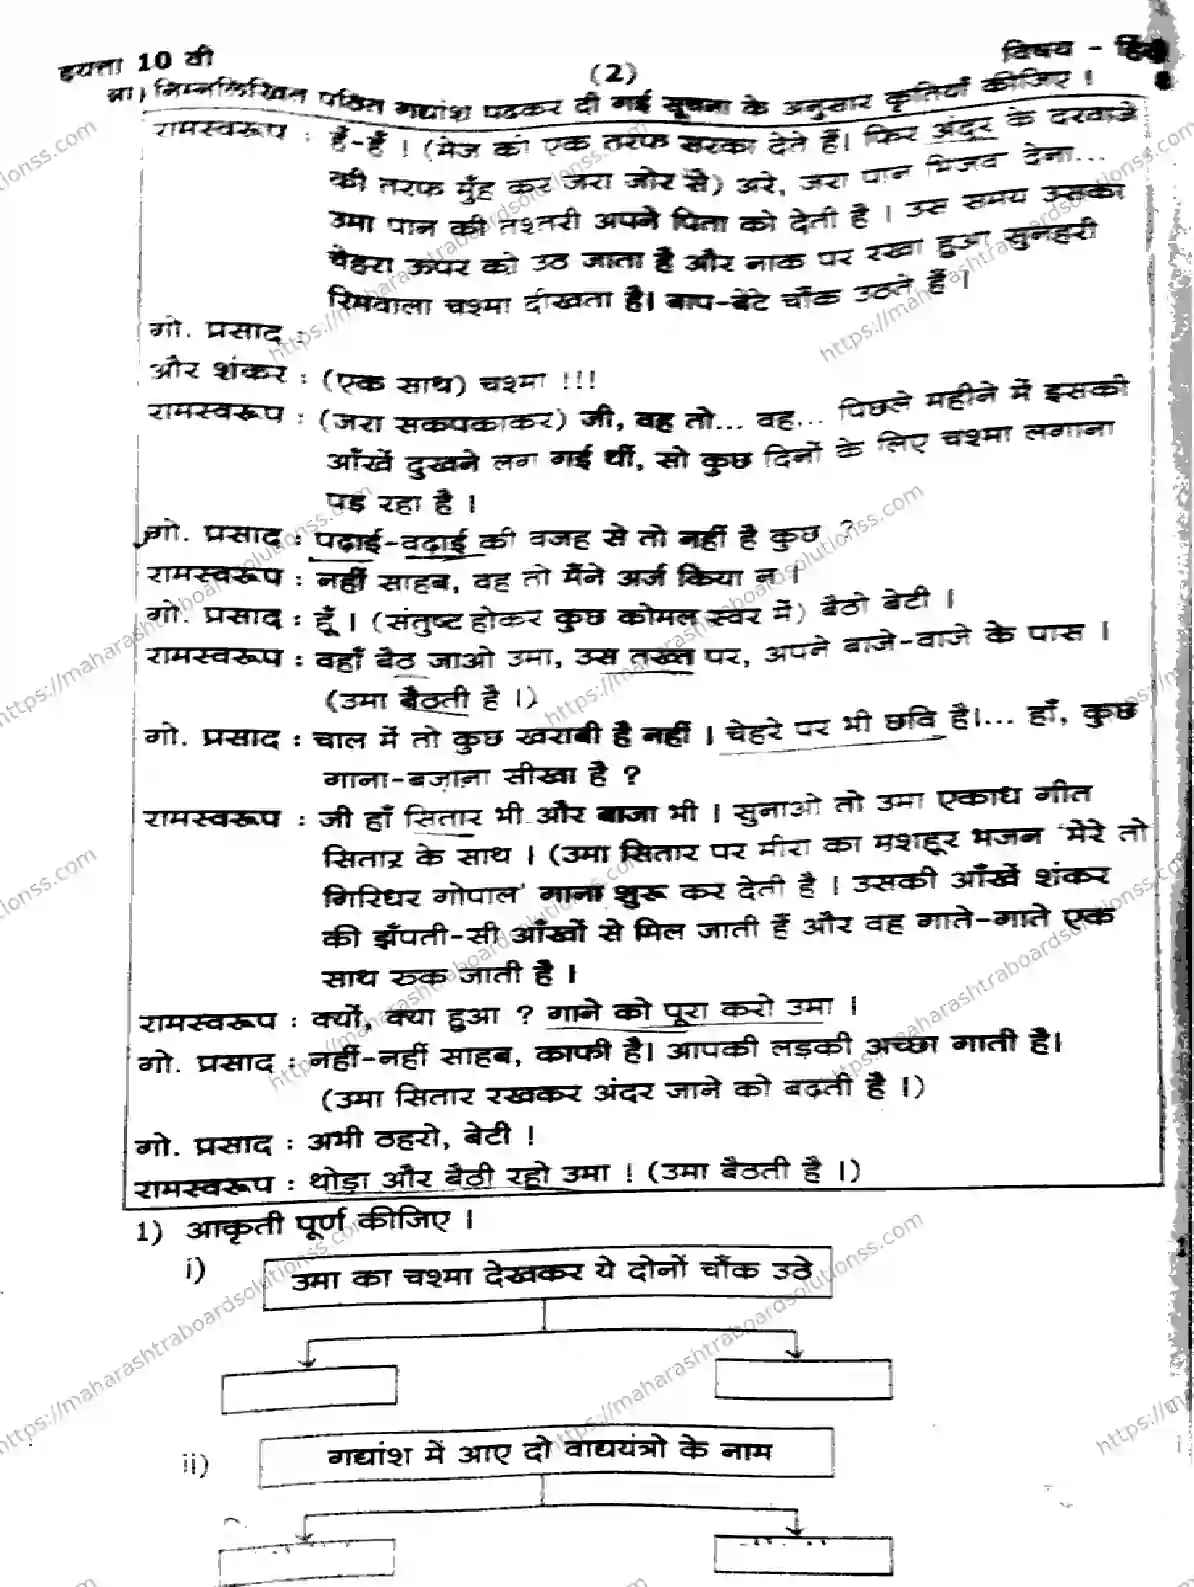 इयत्ता 10 वी
(2)
विषय - हिंदी
आ) निम्नलिखित पठित गद्यांश पढकर दी गई सूचना के अनुसार कृतियाँ कीजिए ।
रामस्वरूप : हँ-हँ ! (मेज को एक तरफ सरका देते हैं। फिर अंदर के दरवाजे
की तरफ मुँह कर जरा जोर से) अरे, जरा पान भिजवा देना...
उमा पान की तश्तरी अपने पिता को देती है । उस समय उसका
चेहरा ऊपर को उठ जाता है और नाक पर रखा हुआ सुनहरी
रिमवाला चश्मा दीखता है। बाप-बेटे चौंक उठते हैं ।
गो. प्रसाद :
और शंकर : (एक साथ) चश्मा !!!
रामस्वरूप : (जरा सकपकाकर) जी, वह तो... वह... पिछले महीने में इसकी
आँखें दुखने लग गई थीं, सो कुछ दिनों के लिए चश्मा लगाना
पड रहा है ।
गो. प्रसाद : पढाई-वढाई की वजह से तो नहीं है कुछ ?
रामस्वरूप : नहीं साहब, वह तो मैंने अर्ज किया न ।
गो. प्रसाद : हूँ । (संतुष्ट होकर कुछ कोमल स्वर में) बैठो बेटी ।
रामस्वरूप : वहाँ बैठ जाओ उमा, उस तख्त पर, अपने बाजे-वाजे के पास ।
(उमा बैठती है ।)
गो. प्रसाद : चाल में तो कुछ खराबी है नहीं । चेहरे पर भी छवि है।... हाँ, कुछ
गाना-बजाना सीखा है ?
रामस्वरूप : जी हाँ सितार भी और बाजा भी । सुनाओ तो उमा एकाध गीत
सितार के साथ । (उमा सितार पर मीरा का मशहूर भजन 'मेरे तो
गिरिधर गोपाल' गाना शुरू कर देती है । उसकी आँखें शंकर
की झँपती-सी आँखों से मिल जाती हैं और वह गाते-गाते एक
साथ रुक जाती है ।
रामस्वरूप : क्यों, क्या हुआ ? गाने को पूरा करो उमा ।
गो. प्रसाद : नहीं-नहीं साहब, काफी है। आपकी लडकी अच्छा गाती है।
(उमा सितार रखकर अंदर जाने को बढती है ।)
गो. प्रसाद : अभी ठहरो, बेटी !
रामस्वरूप : थोडा और बैठी रहो उमा ! (उमा बैठती है ।)
1) आकृती पूर्ण कीजिए ।
i) उमा का चश्मा देखकर ये दोनों चौंक उठे
ii) गद्यांश में आए दो वाद्ययंत्रो के नाम
https://maharashtraboardsolutionss.com